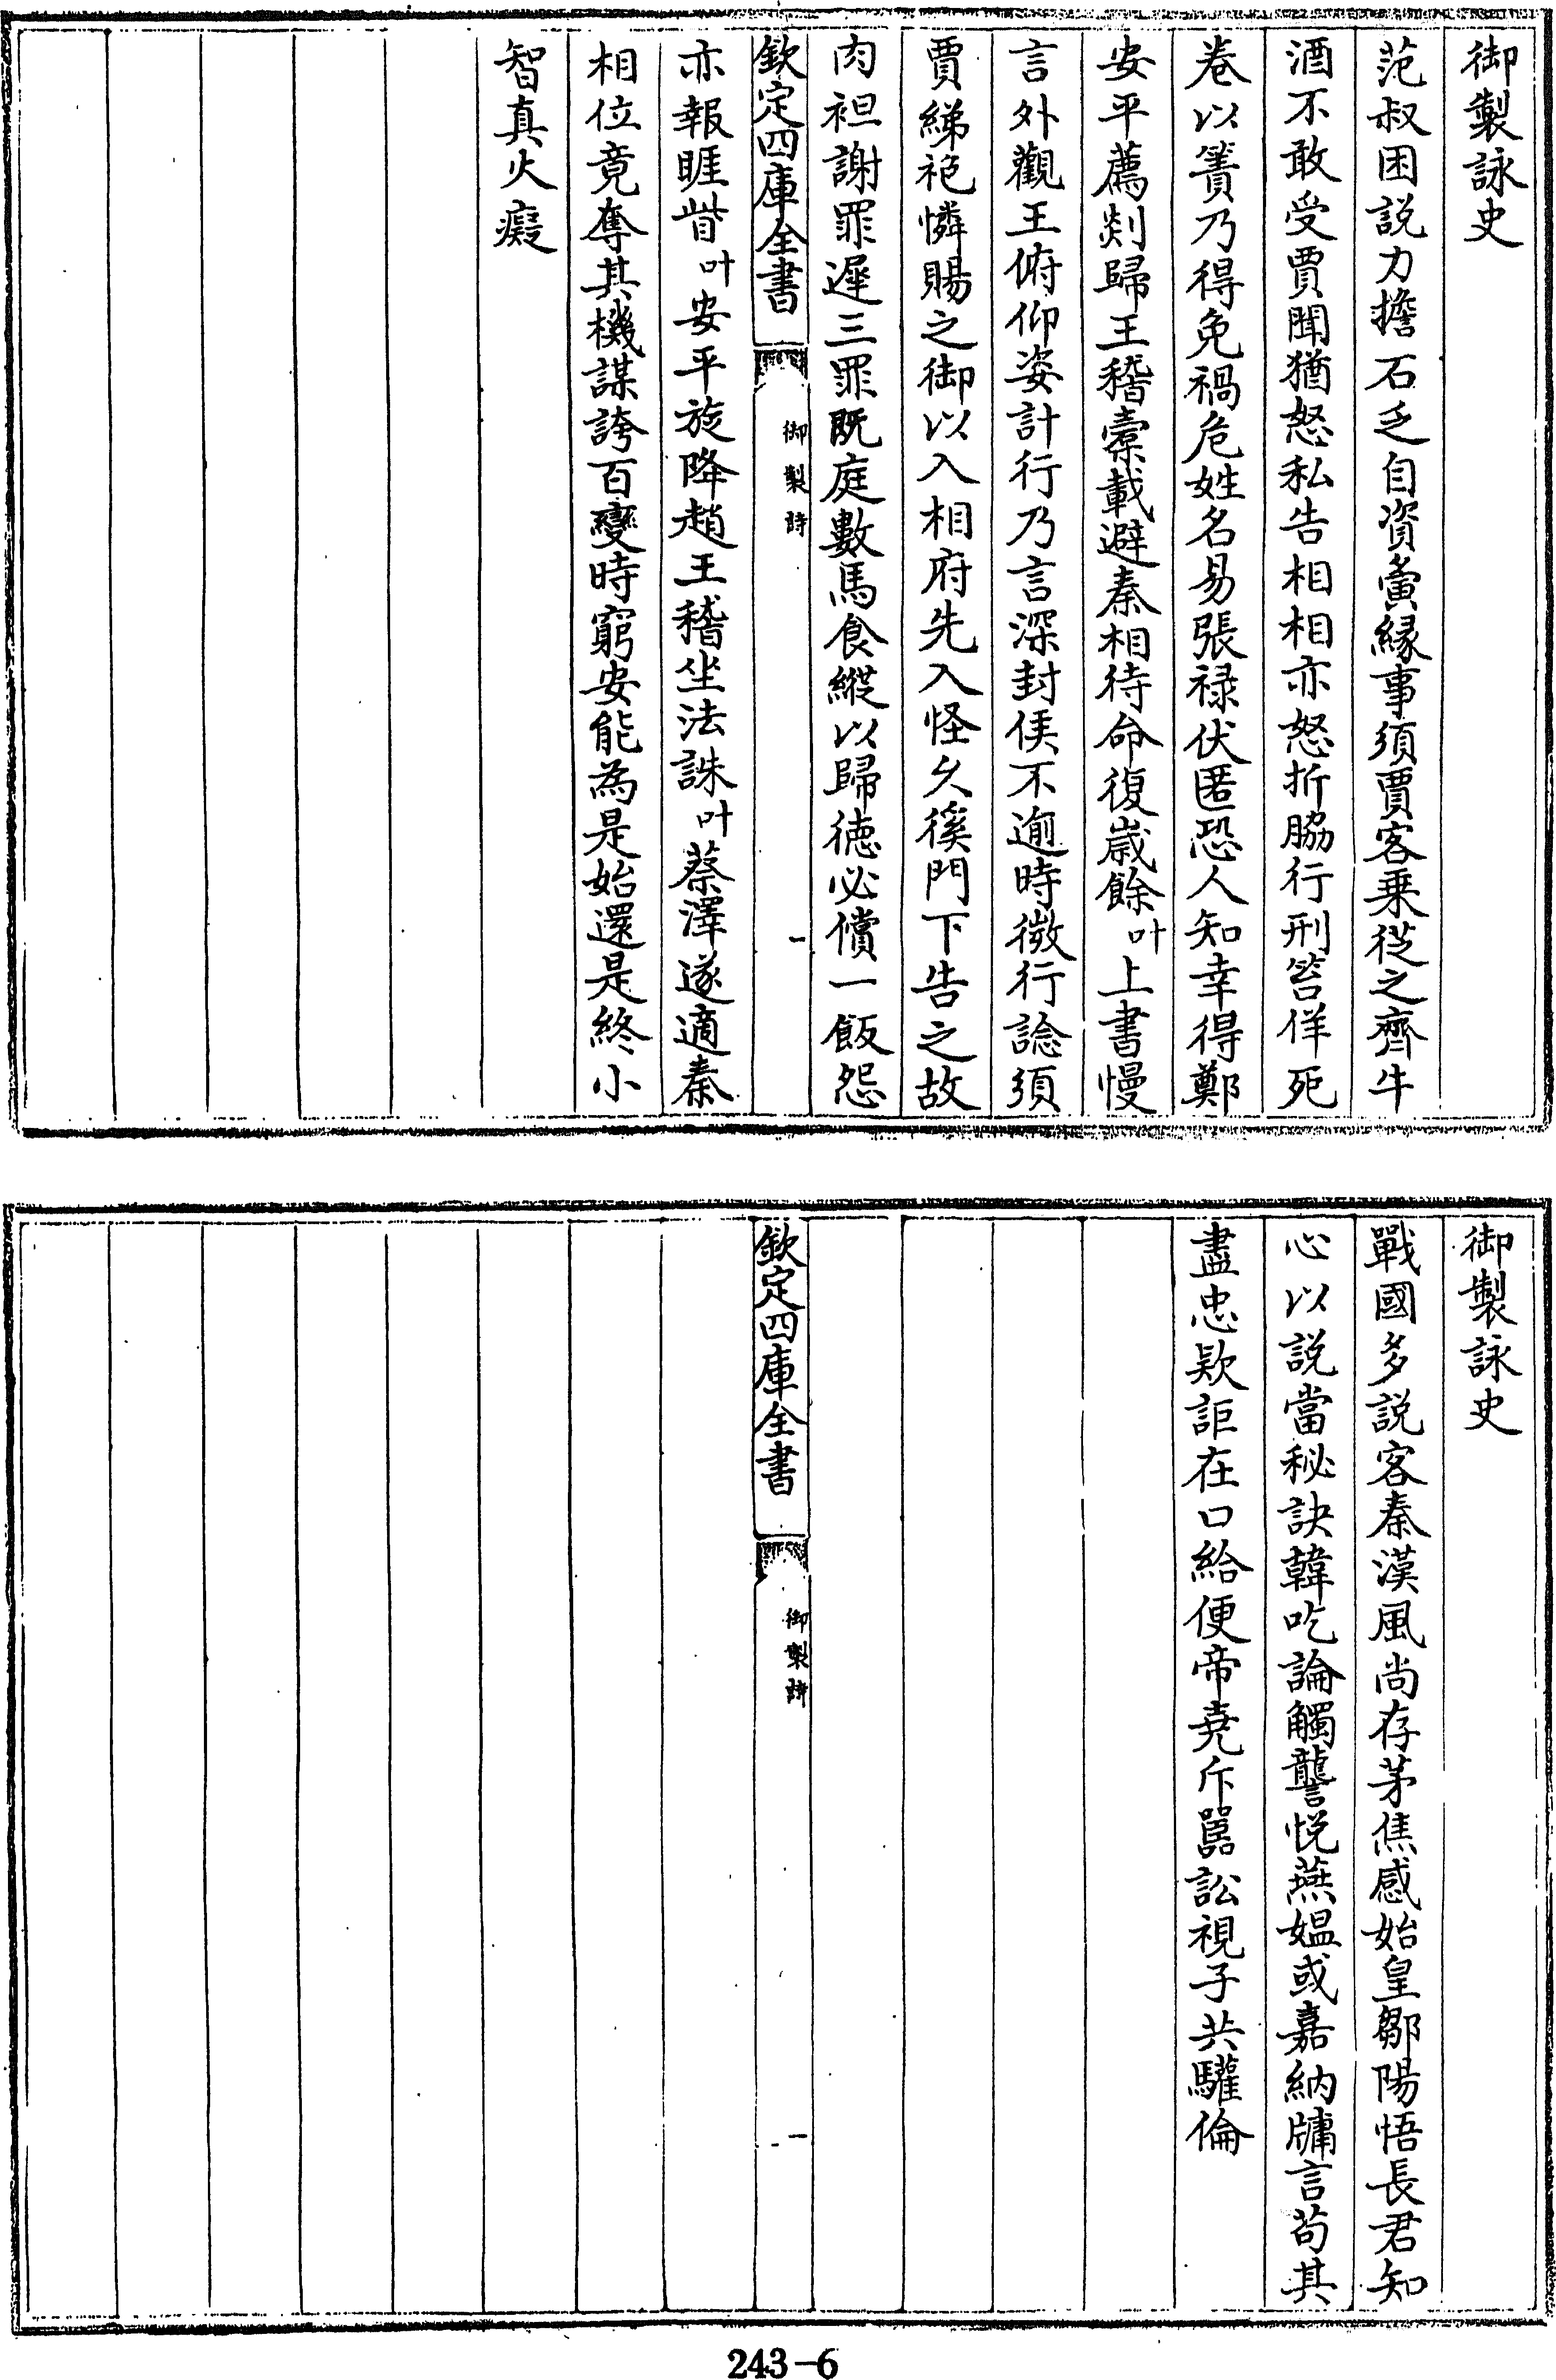 御製詠史
范叔困説力擔石乏自資夤縁事須賈客乗從之齊牛
酒不敢受賈聞猶怒私告相相亦怒折脇行刑笞佯死
卷以簀乃得免禍危姓名易張禄伏匿恐人知幸得鄭
安平薦剡歸王稽橐載避秦相待命復嵗餘叶上書慢
言外觀王俯仰姿計行乃言深封侯不逾時微行諗須
賈綈袍憐賜之御以入相府先入怪久徯門下告之故
肉袒謝罪遲三罪既庭數馬食縱以歸徳必償一飯怨
欽定四庫全書
御製詩
一
亦報睚眥叶安平旋降趙王稽坐法誅叶蔡澤遂適秦
相位竟奪其機謀誇百變時窮安能為是始還是終小
智真大癡
御製詠史
戰國多説客秦漢風尚存茅焦感始皇鄒陽悟長君知
心以説當秘訣韓吃論觸讋悦燕媼或嘉納牗言苟其
盡忠欵詎在口給便帝堯斥嚚訟視子共驩倫
欽定四庫全書
御製詩
一
243-6